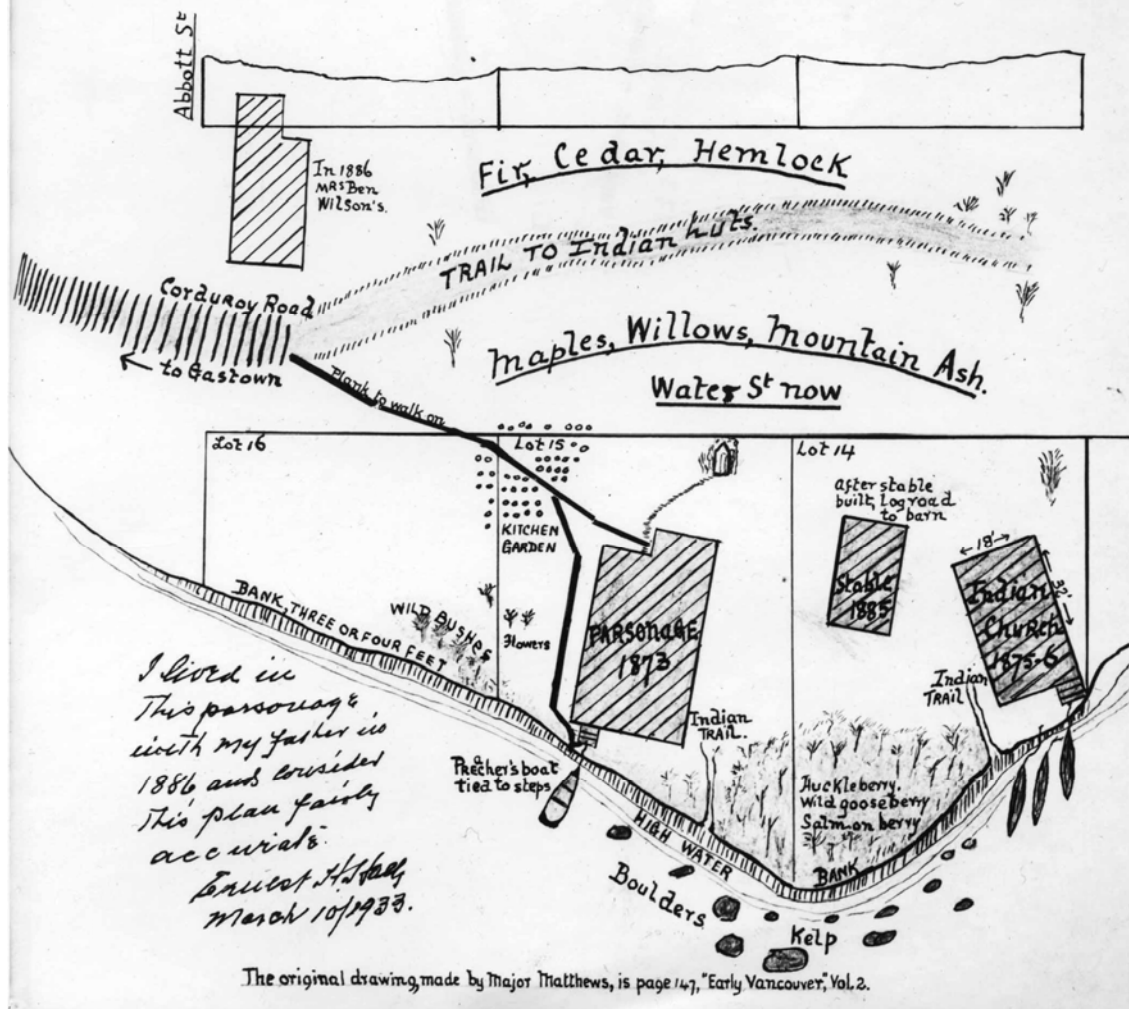 Abbott St
In 1886
Mrs Ben
Wilson's.
Fir, Cedar, Hemlock
TRAIL TO Indian huts.
Corduroy Road
← to Gastown
Maples, Willows, Mountain Ash.
Water St now
Plank to walk on
Lot 16
Lot 15
Lot 14
KITCHEN
GARDEN
after stable
built, log road
to barn
Stable
1885
18'
32'
Indian
Church
1875-6
BANK, THREE OR FOUR FEET
WILD BUSHES
Flowers
PARSONAGE
1873
Indian
TRAIL.
Indian
TRAIL
Preacher's boat
tied to steps
Huckleberry.
Wild gooseberry
Salmon berry
HIGH WATER
BANK
Boulders
Kelp
I lived in
This parsonage
with my father in
1886 and consider
This plan fairly
accurate.
Ernest
March 10/1933.
The original drawing, made by Major Matthews, is page 147, "Early Vancouver", Vol. 2.